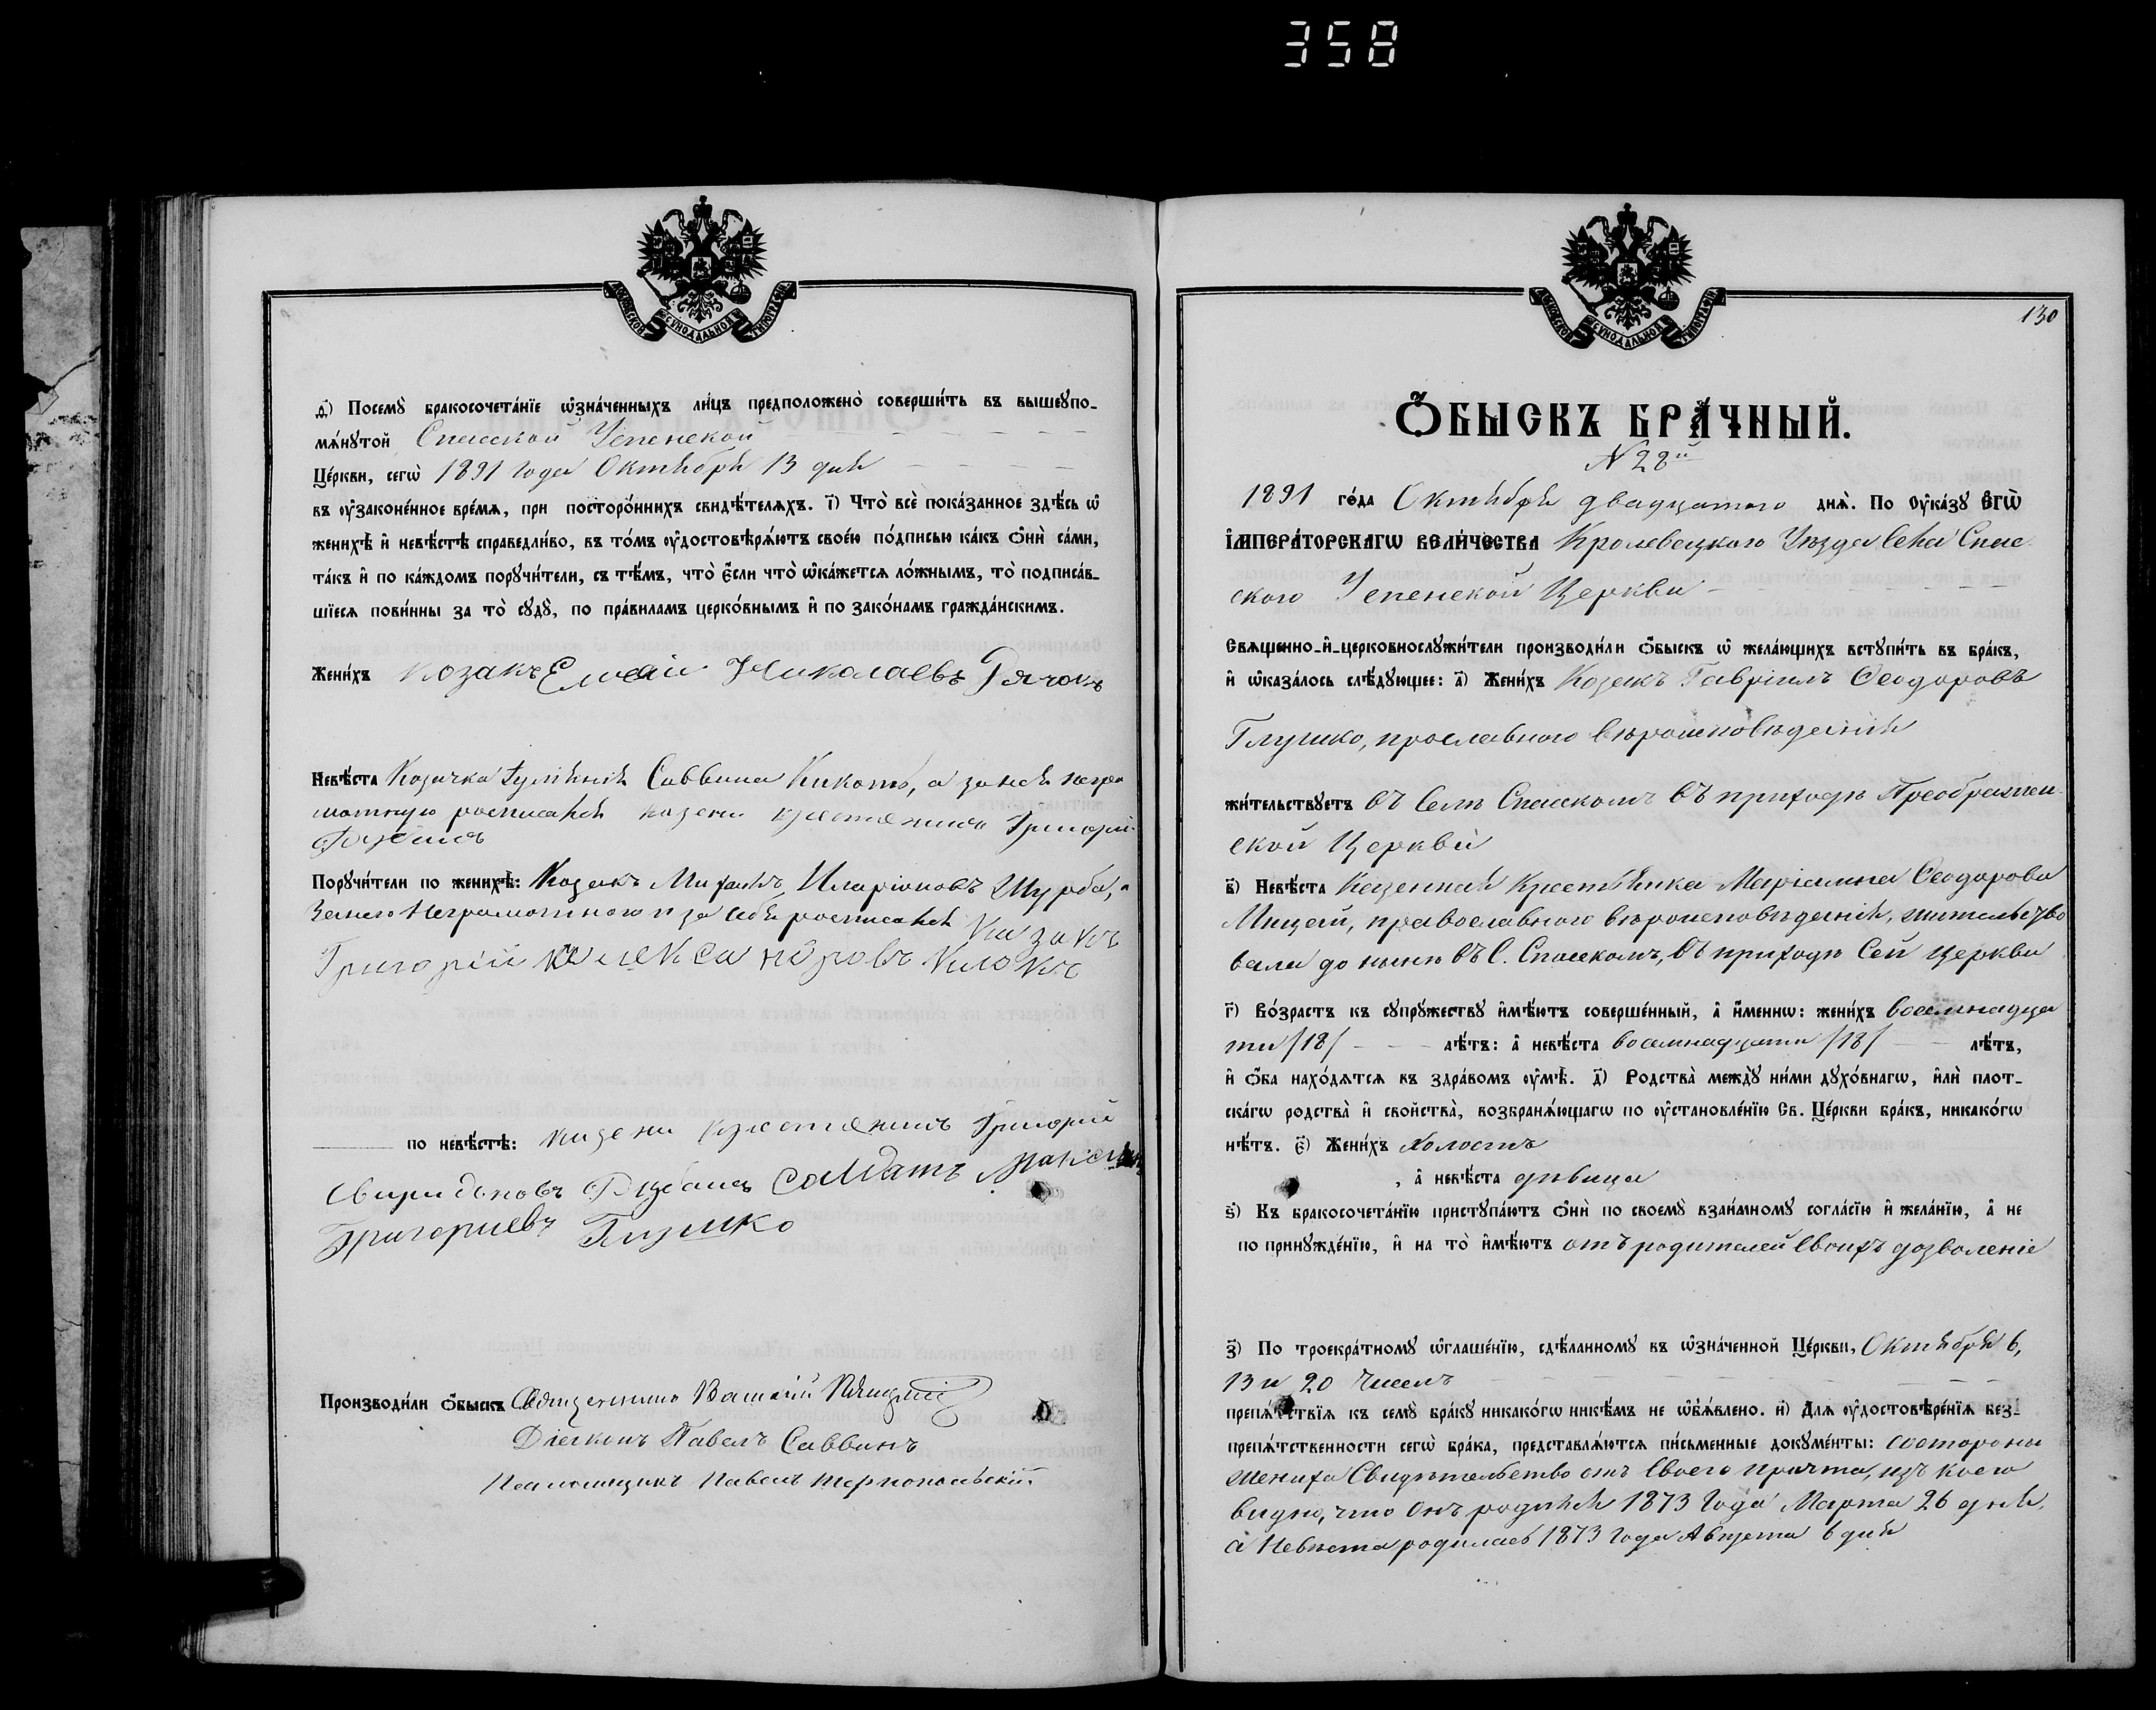 358
МОСКОВСКОЙ СѴНОДАЛЬНОЙ ТИПОГРАФІИ
д҃) Посемꙋ̀ бракосочета́нїе ѡ҆зна́ченныхъ ли́цъ предположено̀ соверши́ть въ вышеꙋпо-
мѧ́нꙋтой Спасской Успенской
Це́ркви, сегѡ̀ 1891 года Октября 13 дня
въ ᲂу҆законе́нное вре́мѧ, при посторо́ннихъ свидѣ́телѧхъ. і҃) Что̀ всѐ пока́занное здѣ́сь ѡ҆
женихѣ̀ и҆ невѣ́стѣ справедли́во, въ то́мъ ᲂу҆достовѣрѧ́ютъ свое́ю по́дписью ка́къ ѻ҆нѝ са́ми,
та́къ и҆ по ка́ждомъ порꙋчи́тели, съ тѣ́мъ, что̀ є҆́сли что̀ ѡ҆ка́жетсѧ ло́жнымъ, то̀ подписа́в-
шїесѧ пови́нны за то̀ сꙋдꙋ̀, по пра́виламъ церко́внымъ и҆ по зако́намъ гражда́нскимъ.
Жени́хъ козакъ Николаевъ Рячокъ
Невѣ́ста Козачка Саввина Кикоть, а за нея негра
мотную росписался казен. крестянинъ Григорий
Порꙋчи́тели по женихѣ̀: Козакъ Иларіоновъ Шурба, а
за него неграмотного и за себя росписался Казакъ
Григорій Александровъ
по невѣ́стѣ: казени крестянинъ Григорий
Свиридоновъ Салдатъ Максим
Григориевъ Глушко
Производи́ли ѻ҆́быскъ Священникъ
Діаконъ Павелъ Саввинъ
Псаломщикъ Павелъ Тернопольскій.
МОСКОВСКОЙ СѴНОДАЛЬНОЙ ТИПОГРАФІИ
130
Ѻ҆́БЫСКЪ БРА́ЧНЫЙ.
N 28й
1891 го́да Октября двадцатого днѧ̀. По ᲂу҆ка́зꙋ Є҆гѡ̀
І҆мпера́торскагѡ вели́чества Кролевецкого Уѣзда Села Спас
ского Успенской Церкви
Свѧщенно-и҆-церковнослꙋжи́тели производи́ли ѻ҆́быскъ ѡ҆ жела́ющихъ встꙋпи́ть въ бра́къ,
и҆ ѡ҆каза́лось слѣ́дꙋющее: а҃) Жени́хъ Козакъ Гавріилъ Ѳеодоровъ
Глушко, прославного вѣроисповѣданія
жи́тельствꙋетъ въ Селѣ Спасскомъ въ приходѣ Преображен
ской Церкви
в҃) Невѣ́ста Казенная Крестьянка Маріамна Ѳеодорова
Мицай, православного вѣроисповѣданія, жительство
вала до нынѣ въ С. Спасскомъ, въ приходѣ Сей Церкви
г҃) Во́зрастъ къ сꙋпрꙋ́жествꙋ и҆мѣ́ютъ соверше́нный, а҆ и҆́меннѡ: жени́хъ восемнадца
ти /18/ лѣ́тъ: а҆ невѣ́ста восемнадцати /18/ лѣ́тъ,
и҆ ѻ҆́ба нахо́дѧтсѧ въ здра́вомъ ᲂу҆мѣ̀. д҃) Родства̀ междꙋ̀ ни́ми дꙋхо́внагѡ, и҆лѝ плот-
ска́гѡ родства̀ и҆ свойства̀, возбранѧ́ющагѡ по ᲂу҆становле́нїю Св. Це́ркви бра́къ, никако́гѡ
нѣ́тъ. є҃) Жени́хъ холостъ
, а҆ невѣ́ста дѣвица
ѕ҃) Къ бракосочета́нїю пристꙋпа́ютъ ѻ҆нѝ по своемꙋ̀ взаи́мномꙋ согла́сїю и҆ жела́нїю, а҆ не
по принꙋжде́нїю, и҆ на то̀ и҆мѣ́ютъ отъ родителей своихъ дозволеніе
з҃) По троекра́тномꙋ ѡ҆глаше́нїю, сдѣ́ланномꙋ въ ѡ҆зна́ченной Це́ркви, Октября 6,
13 и 20 чиселъ
препѧ́тствїѧ къ семꙋ̀ бра́кꙋ никако́гѡ никѣ́мъ не ѡ҆б̾ѧ́влено. и҃) Длѧ ᲂу҆достовѣре́нїѧ без-
препѧ́тственности сегѡ̀ бра́ка, представлѧ́ютсѧ пи́сьменные докꙋме́нты: состороны
жениха Свидѣтельство отъ своего причта, изъ коего
видно, что онъ родился 1873 года Марта 26 дня,
а невѣста родилась 1873 года Августа 6 дня